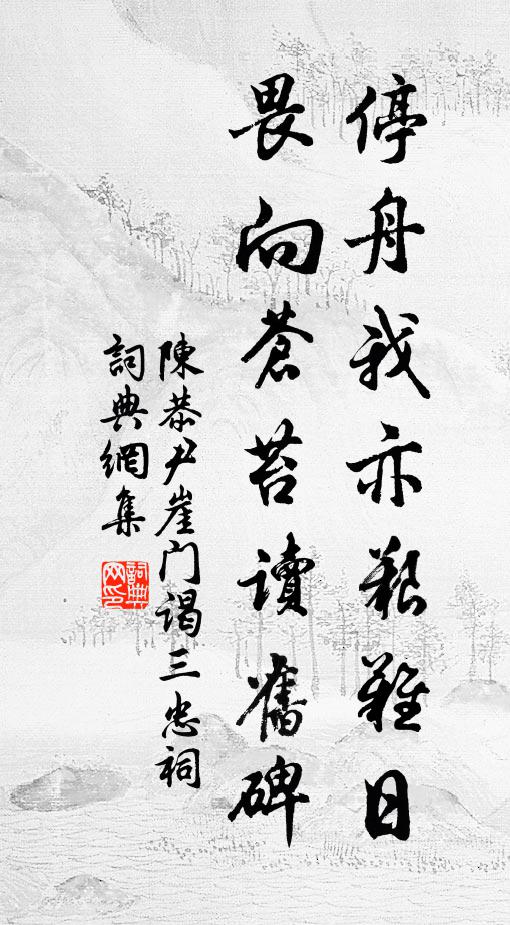 停舟我亦艱難日
畏向蒼苔讀舊碑
陳恭尹崖门謁三忠祠
詞典網集